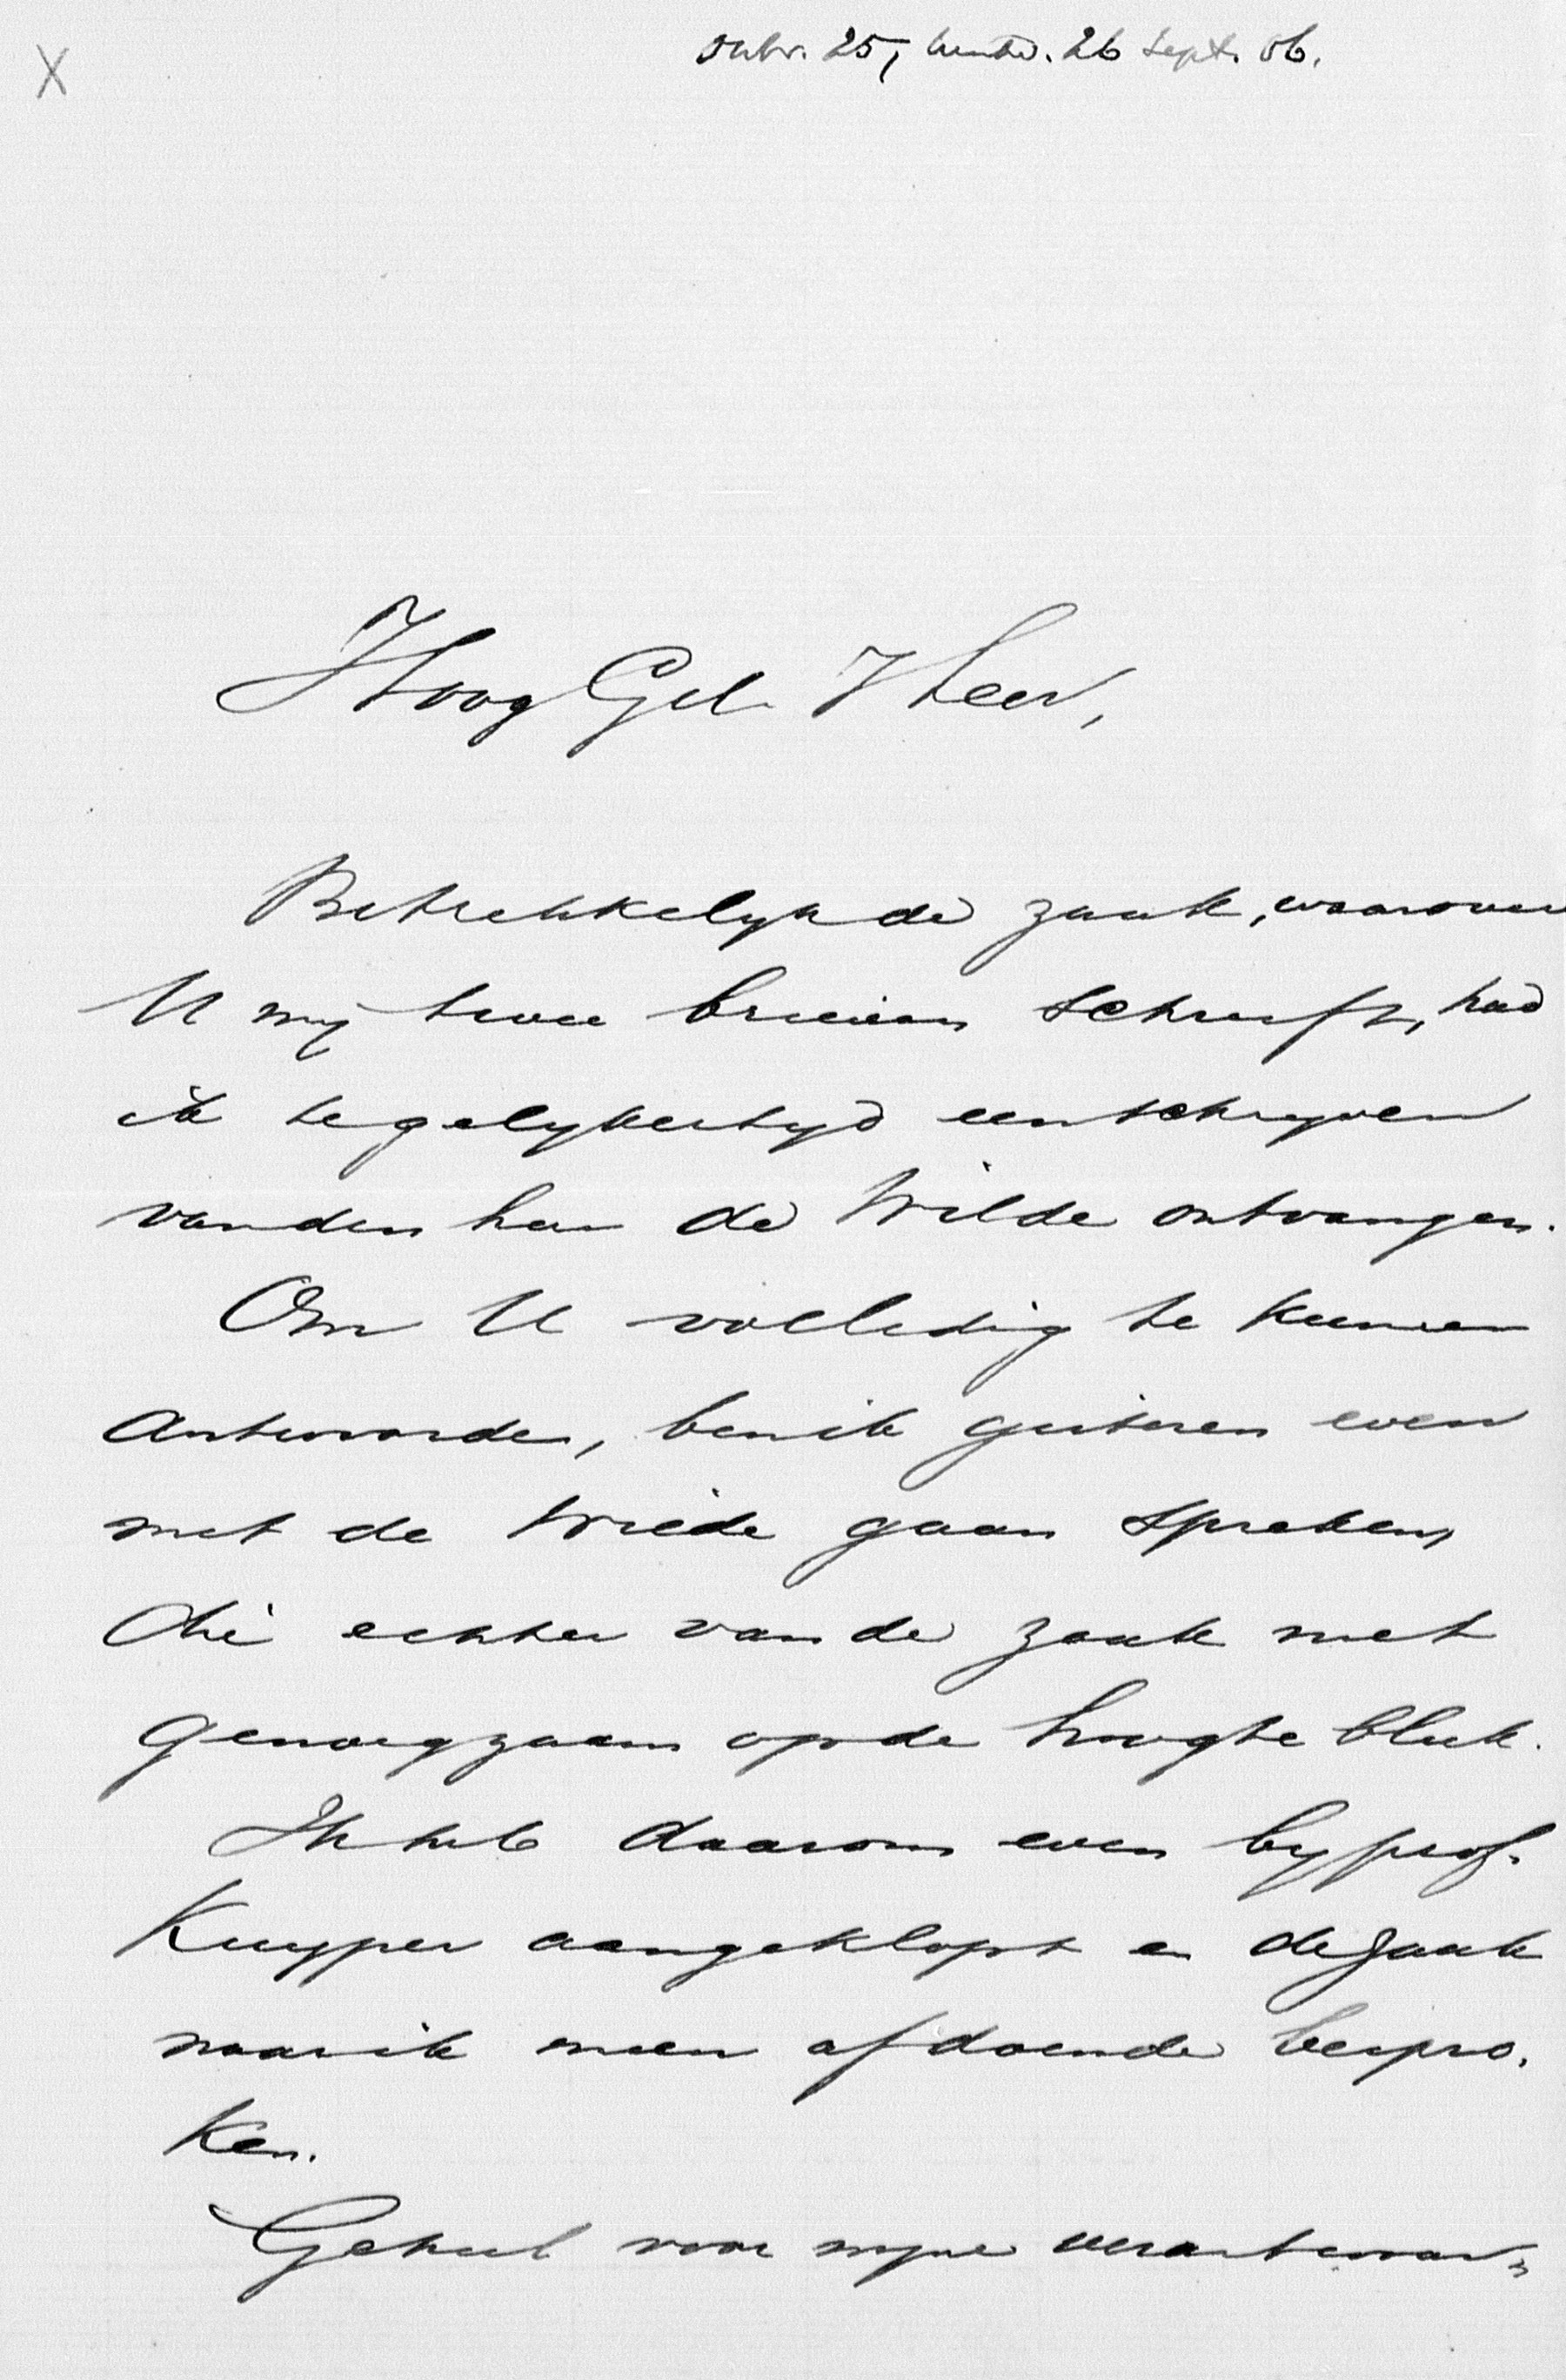 X
ontv. 25, beantw. 26 Sept. 06.
Hoog Gel. Heer,
Betrekkelyk de zaak, waarover
U mij twee brieven schreeft, had
ik tegelykertyd een schryven
van den heer de Wilde ontvangen.
Om U volledig te kunnen
antwoorden, ben ik gisteren even
met de Wilde gaan spreken,
die echter van de zaak niet
genoegzaam op de hoogte bleek.
Ik heb daarom even by prof.
Kuyper aangeklopt en de zaak
naar ik meen afdoende bespro-
ken.
Geheel voor myne verantwoor-